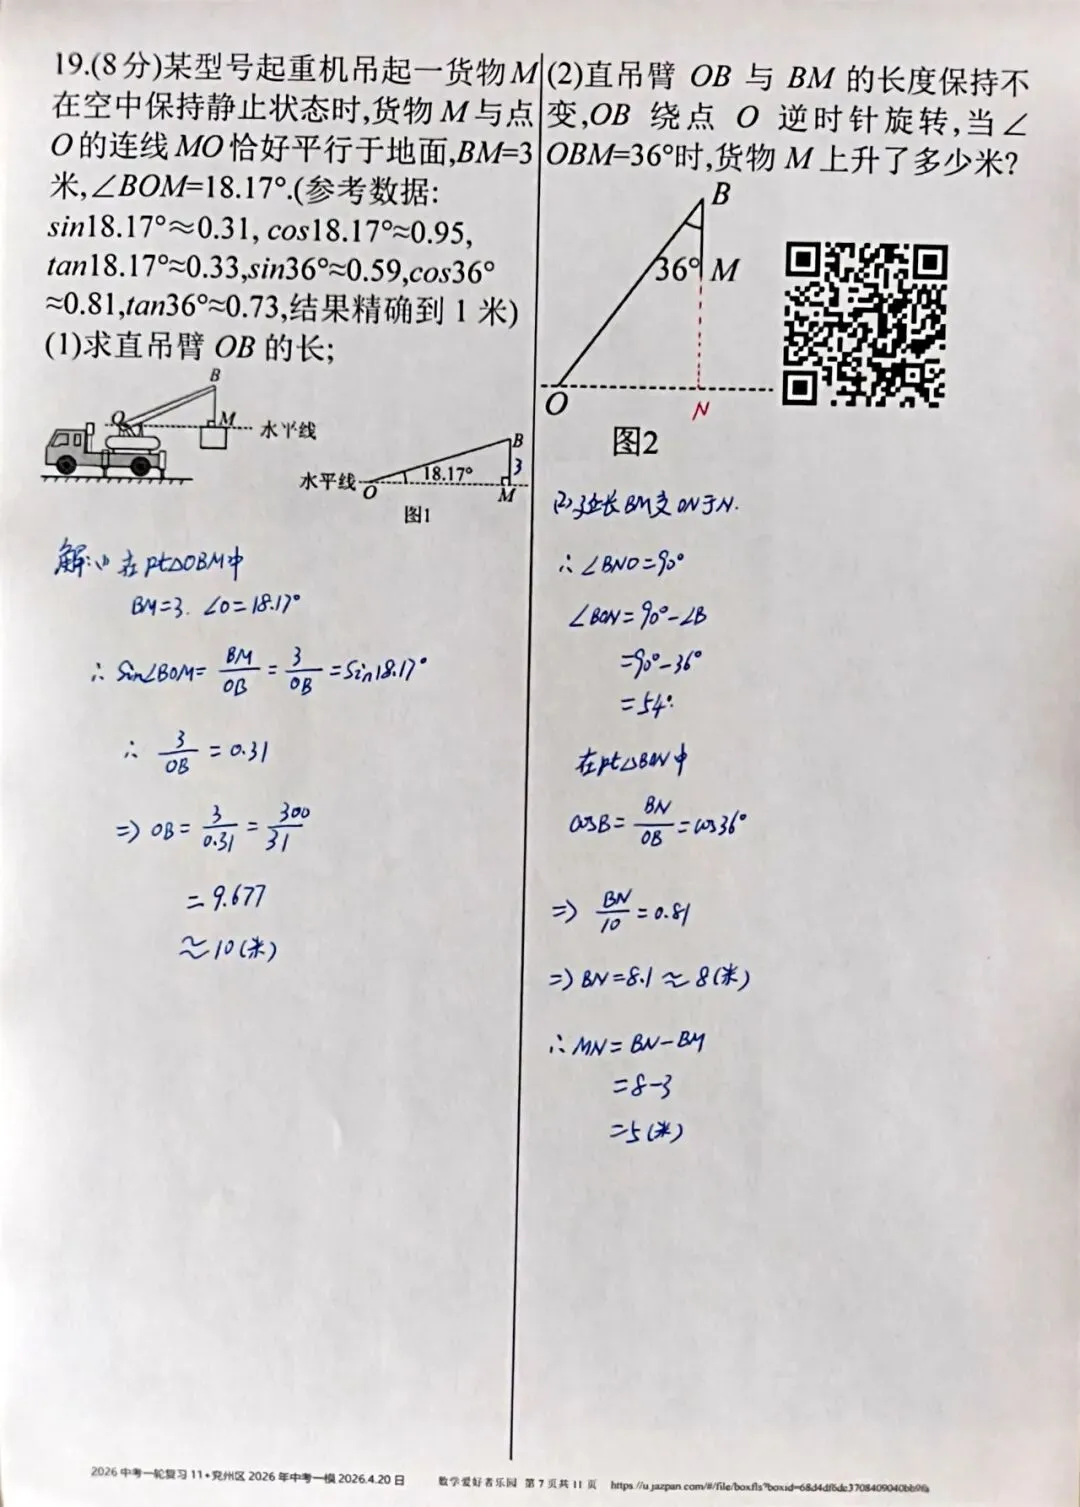 19.(8分)某型号起重机吊起一货物M
在空中保持静止状态时,货物M与点
O的连线MO恰好平行于地面,BM=3
米,∠BOM=18.17°.(参考数据:
sin18.17°≈0.31, cos18.17°≈0.95,
tan18.17°≈0.33,sin36°≈0.59,cos36°
≈0.81,tan36°≈0.73,结果精确到1米)
(1)求直吊臂OB的长;
B
O
M
水平线
B
3
水平线
O
18.17°
M
图1
解:(1)在Rt△OBM中
BM=3. ∠O=18.17°
∴ Sin∠BOM= BM/OB = 3/OB =Sin18.17°
∴ 3/OB = 0.31
=> OB= 3/0.31 = 300/31
= 9.677
≈10(米)
(2)直吊臂 OB 与 BM 的长度保持不
变,OB 绕点 O 逆时针旋转,当∠
OBM=36°时,货物M上升了多少米?
B
36°
M
O
N
图2
(2)延长BM交ON于N.
∴∠BNO=90°
∠BON=90°-∠B
=90°-36°
=54°.
在Rt△BON中
cosB= BN/OB =cos36°
=> BN/10 =0.81
=> BN=8.1≈8(米)
∴MN=BN-BM
=8-3
=5(米)
2026中考一轮复习11+兖州区2026年中考一模2026.4.20日
数学爱好者乐园 第7页共11页 https://u.jazpan.com/#/file/boxfls?boxid=68d4df6dc3708409040bb9fa